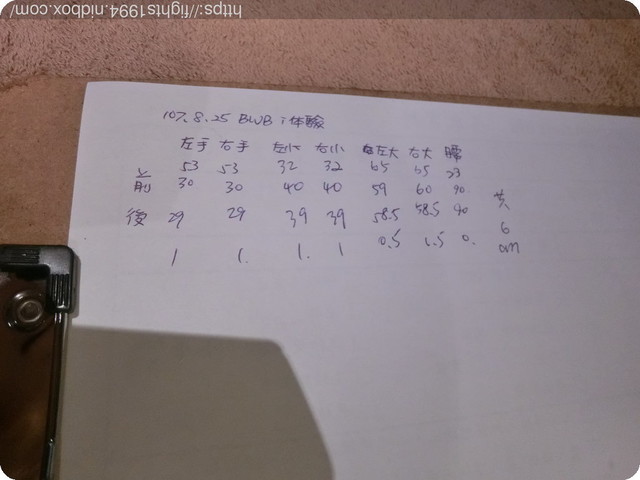 https://fights1994.nidbox.com/
107.8.25 BWB i 体驗
左手 右手 左小 右小 左大 右大 腰
上 53 53 32 32 65 65 23
前 30 30 40 40 59 60 90 共
後 29 29 39 39 58.5 58.5 90 6
1 1. 1. 1 0.5 1.5 0. cm